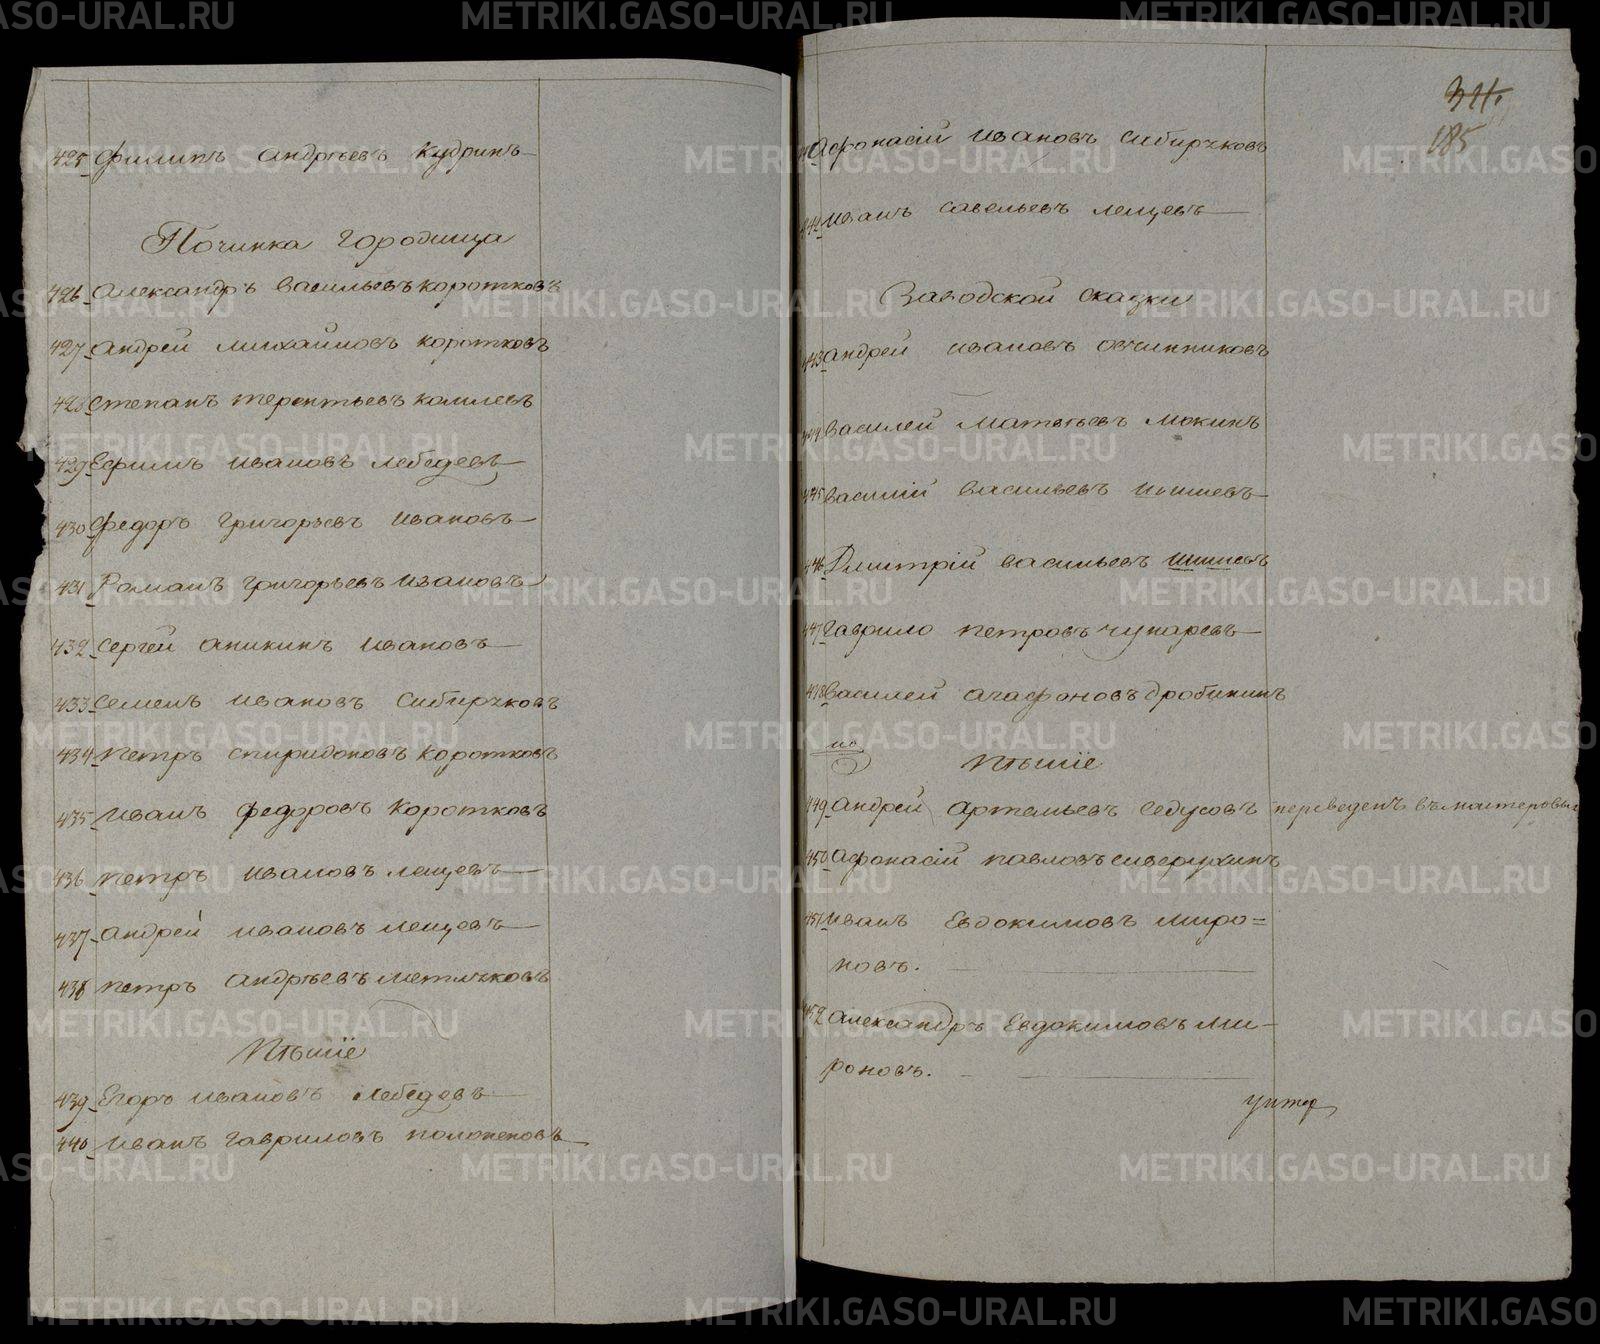 425 Филипъ Андрѣевъ Кудринъ
Починка Городища
426 Александръ Васильевъ Коротковъ
427 Андрей Михайловъ Коротковъ
428 Степанъ Терентьевъ
429 Ефимъ Ивановъ Лебедевъ
430 Федоръ Григорьевъ Ивановъ
431 Романъ Григорьевъ Ивановъ
432 Сергей Аникинъ Ивановъ
433 Семенъ Ивановъ Сибирчковъ
434 Петръ Спиридоновъ Коротковъ
435 Иванъ Федоровъ Коротковъ
436 Петръ Ивановъ Лещевъ
437 Андрей Ивановъ Лещевъ
438 Петръ Андрѣевъ Метлчковъ
Пѣшіе
439 Егоръ Ивановъ Лебедевъ
440 Иванъ Гавриловъ Полопеновъ
185
Афонасій Ивановъ Сибирчковъ
442 Иванъ Савельевъ Лещевъ
Заводской сказки
443 Андрей Ивановъ Овчинниковъ
444 Василей Матвѣевъ Мокинъ
445 Василій Васильевъ Шишевъ
446 Дмитрій Васильевъ Шишевъ
447 Гаврило Петровъ Чупаревъ
448 Василей Агафоновъ Дробининъ
Пѣшіе
449 Андрей Артемьевъ Седусовъ переведенъ въ мастеровые
450 Афонасій Павловъ Сиверухинъ
451 Иванъ Евдокимовъ Миро=
новъ.
452 Александръ Евдокимовъ Ми-
роновъ.
унтер
METRIKI.GASO-URAL.RU